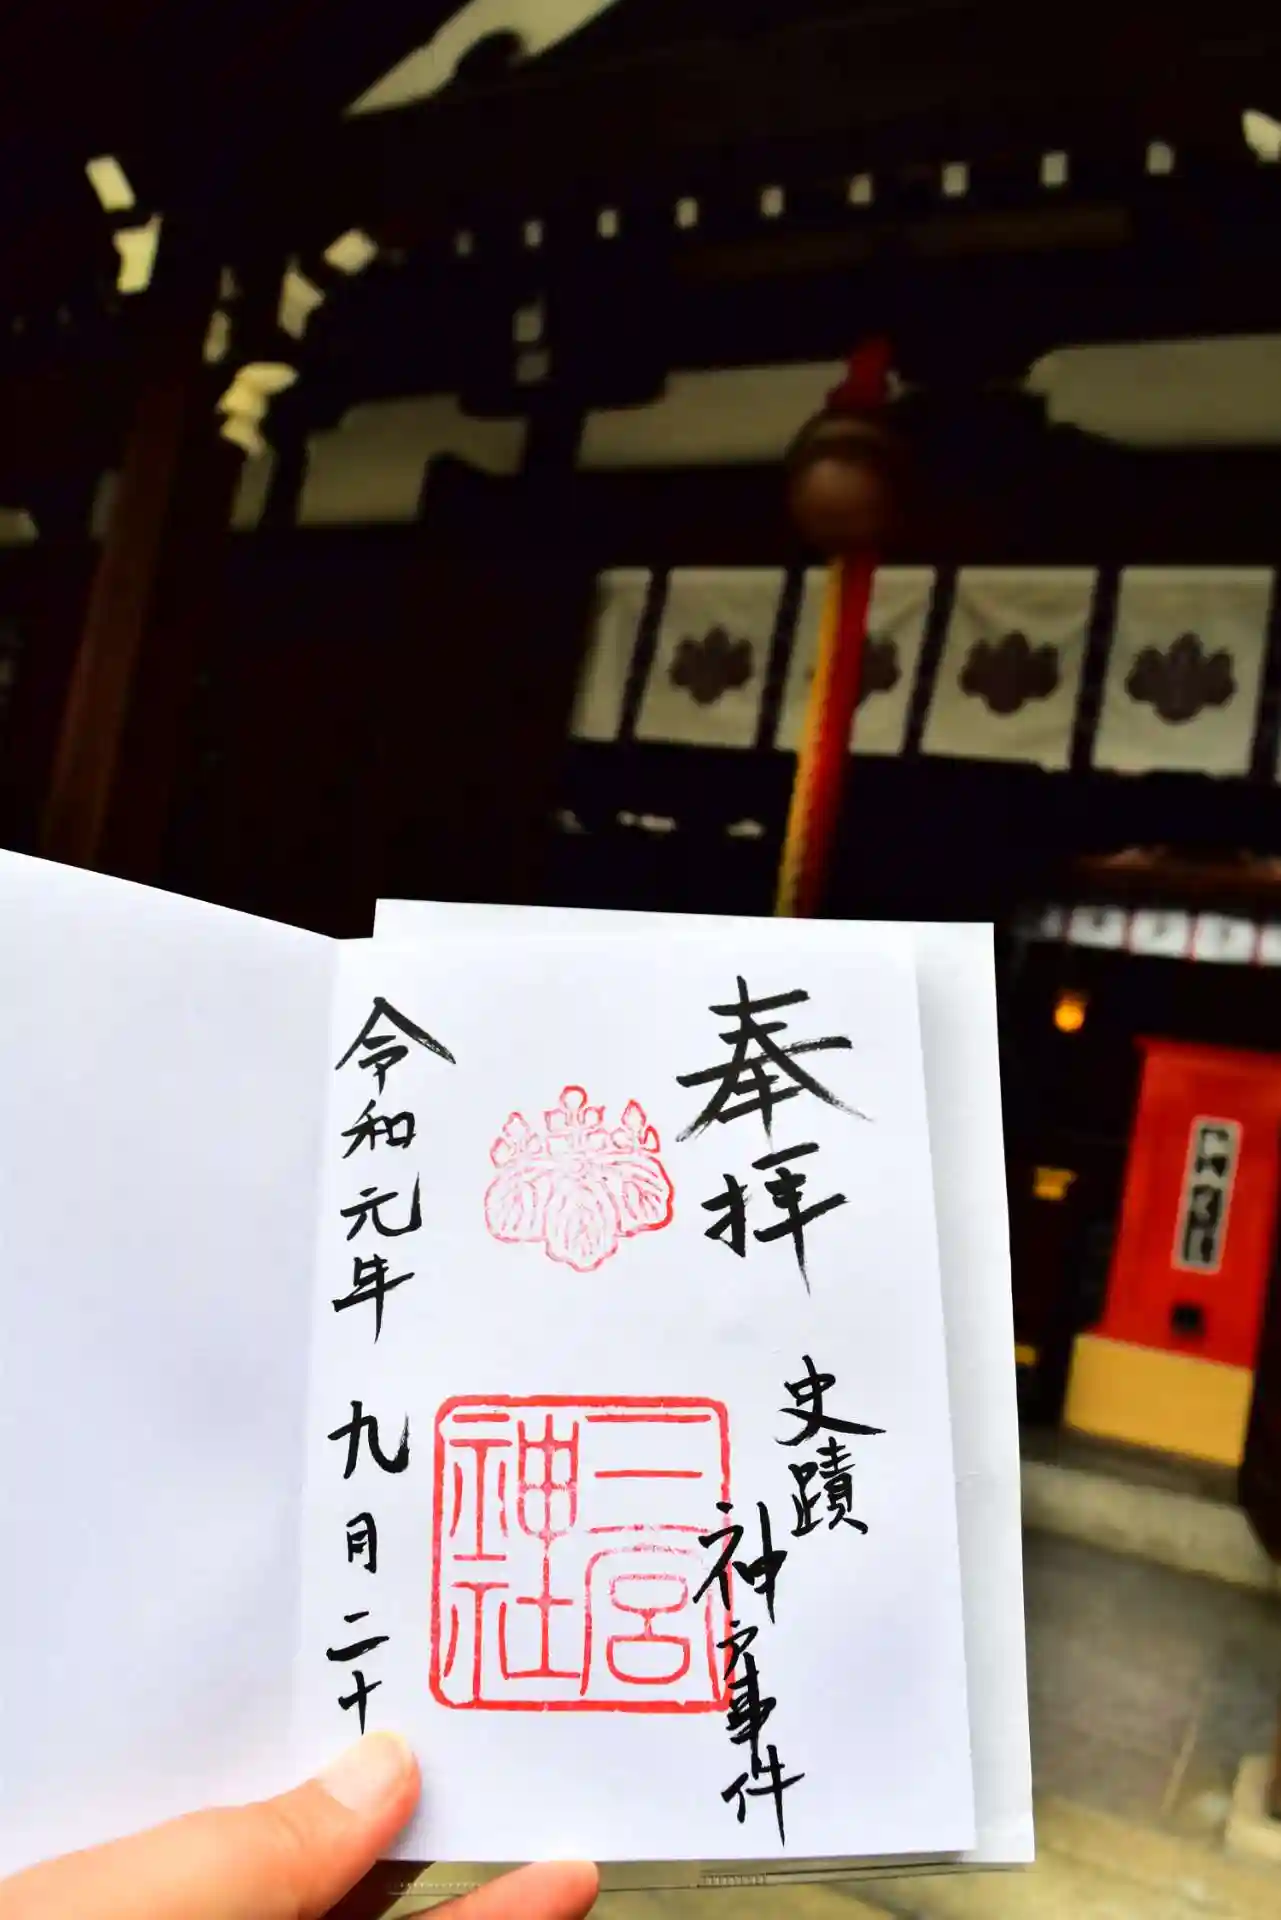 奉拝
史蹟
神戸事件
三宮神社
令和元年 九月二十